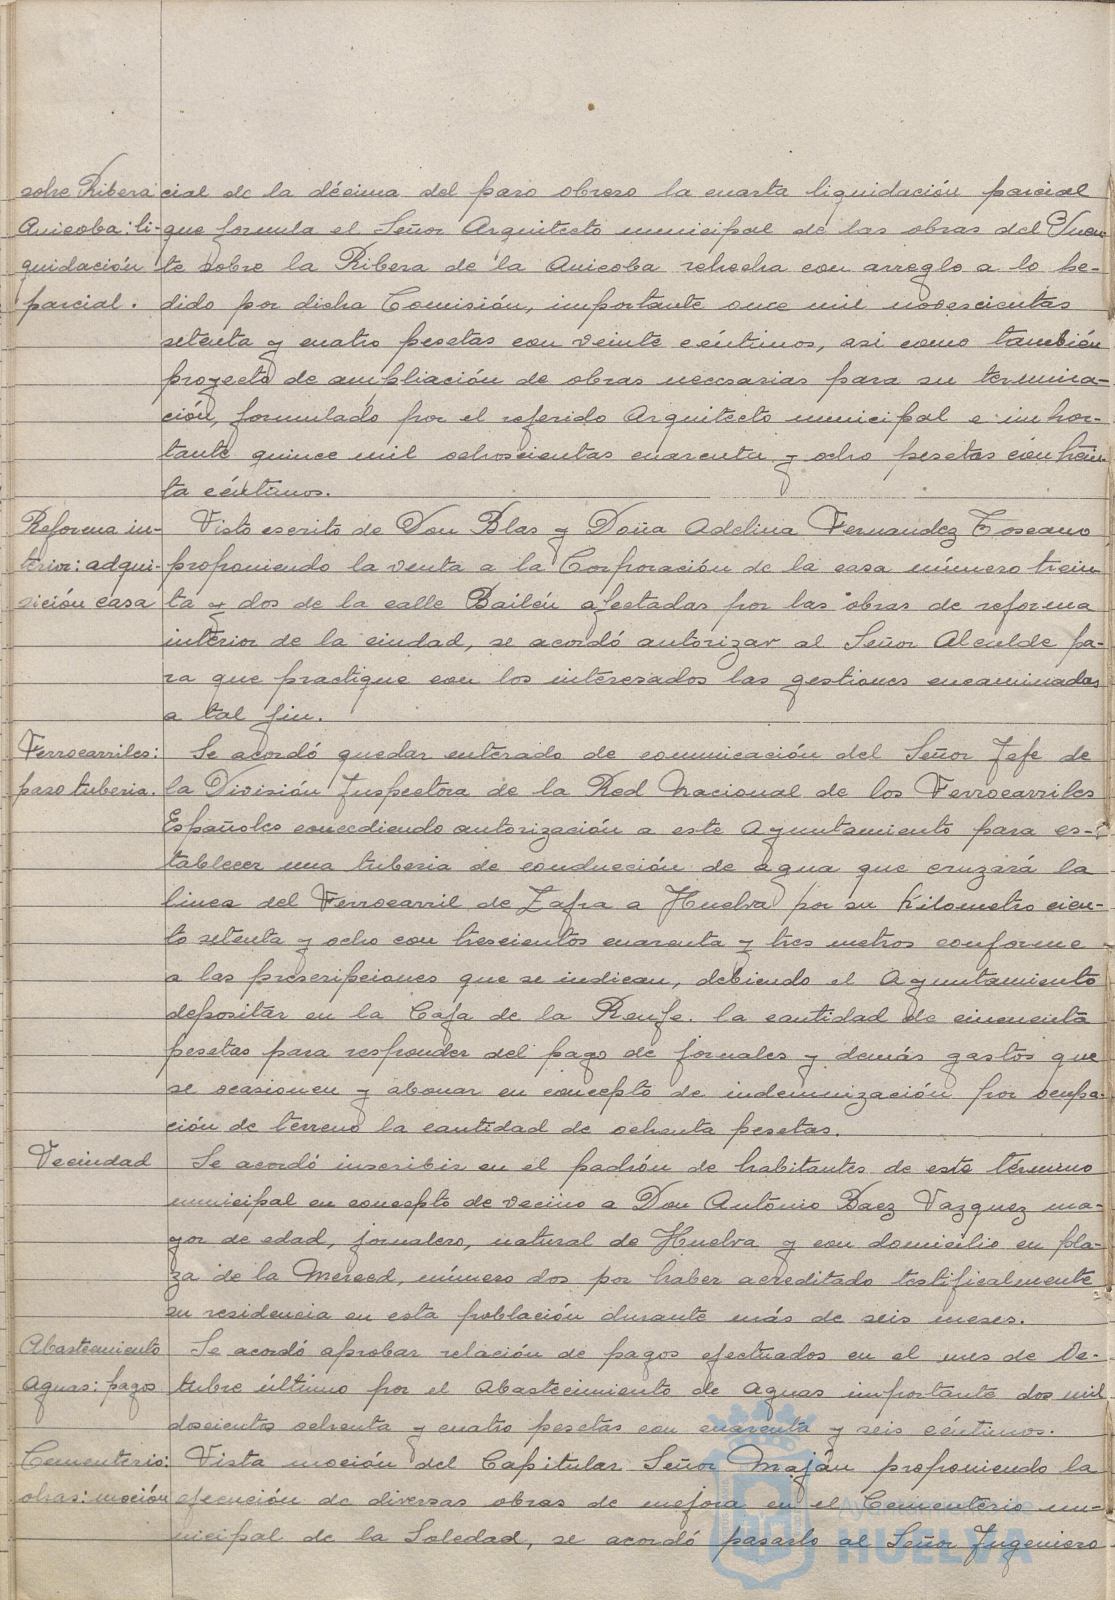 sobre Ribera
Anicoba: li-
quidación
parcial.
cial de la décima del paro obrero la cuarta liquidación parcial
que formula el Señor Arquitecto municipal de las obras del Puen-
te sobre la Ribera de la Anicoba rehecha con arreglo a lo pe-
dido por dicha Comisión, importante once mil novecientas
setenta y cuatro pesetas con veinte céntimos, asi como también
proyecto de ampliación de obras necesarias para su termina-
ción, formulado por el referido Arquitecto municipal e impor-
tante quince mil ochocientas cuarenta y ocho pesetas con trein-
ta céntimos.
Reforma in-
terior: adqui-
sición casa
Visto escrito de Don Blas y Doña Adelina Fernandez Toscano
proponiendo la venta a la Corporación de la casa número trein-
ta y dos de la calle Bailén afectadas por las obras de reforma
interior de la ciudad, se acordó autorizar al Señor Alcalde pa-
ra que practique con los interesados las gestiones encaminadas
a tal fin.
Ferrocarriles:
paso tuberia.
Se acordó quedar enterado de comunicación del Señor Jefe de
la División Inspectora de la Red Nacional de los Ferrocarriles
Españoles concediendo autorización a este Ayuntamiento para es-
tablecer una tuberia de conducción de agua que cruzará la
linea del Ferrocarril de Zafra a Huelva por su Kilometro cien-
to setenta y ocho con trescientos cuarenta y tres metros conforme
a las prescripciones que se indican, debiendo el Ayuntamiento
depositar en la Caja de la Renfe. la cantidad de cincuenta
pesetas para responder del pago de jornales y demás gastos que
se ocasionen y abonar en concepto de indemnización por ocupa-
ción de terreno la cantidad de ochenta pesetas.
Vecindad
Se acordó inscribir en el padrón de habitantes de este término
municipal en concepto de vecino a Don Antonio Baez Vazquez ma-
yor de edad, jornalero, natural de Huelva y con domicilio en pla-
za de la Merced, número dos por haber acreditado testificalmente
su residencia en esta población durante más de seis meses.
Abastecimiento
Aguas: pagos
Se acordó aprobar relación de pagos efectuados en el mes de Oc-
tubre último por el Abastecimiento de Aguas importante dos mil
doscientos ochenta y cuatro pesetas con cuarenta y seis céntimos.
Cementerio:
obras: moción
Vista moción del Capitular Señor Maján proponiendo la
ejecución de diversas obras de mejora en el Cementerio mu-
nicipal de la Soledad, se acordó pasarlo al Señor Ingeniero
Ayuntamiento de
HUELVA